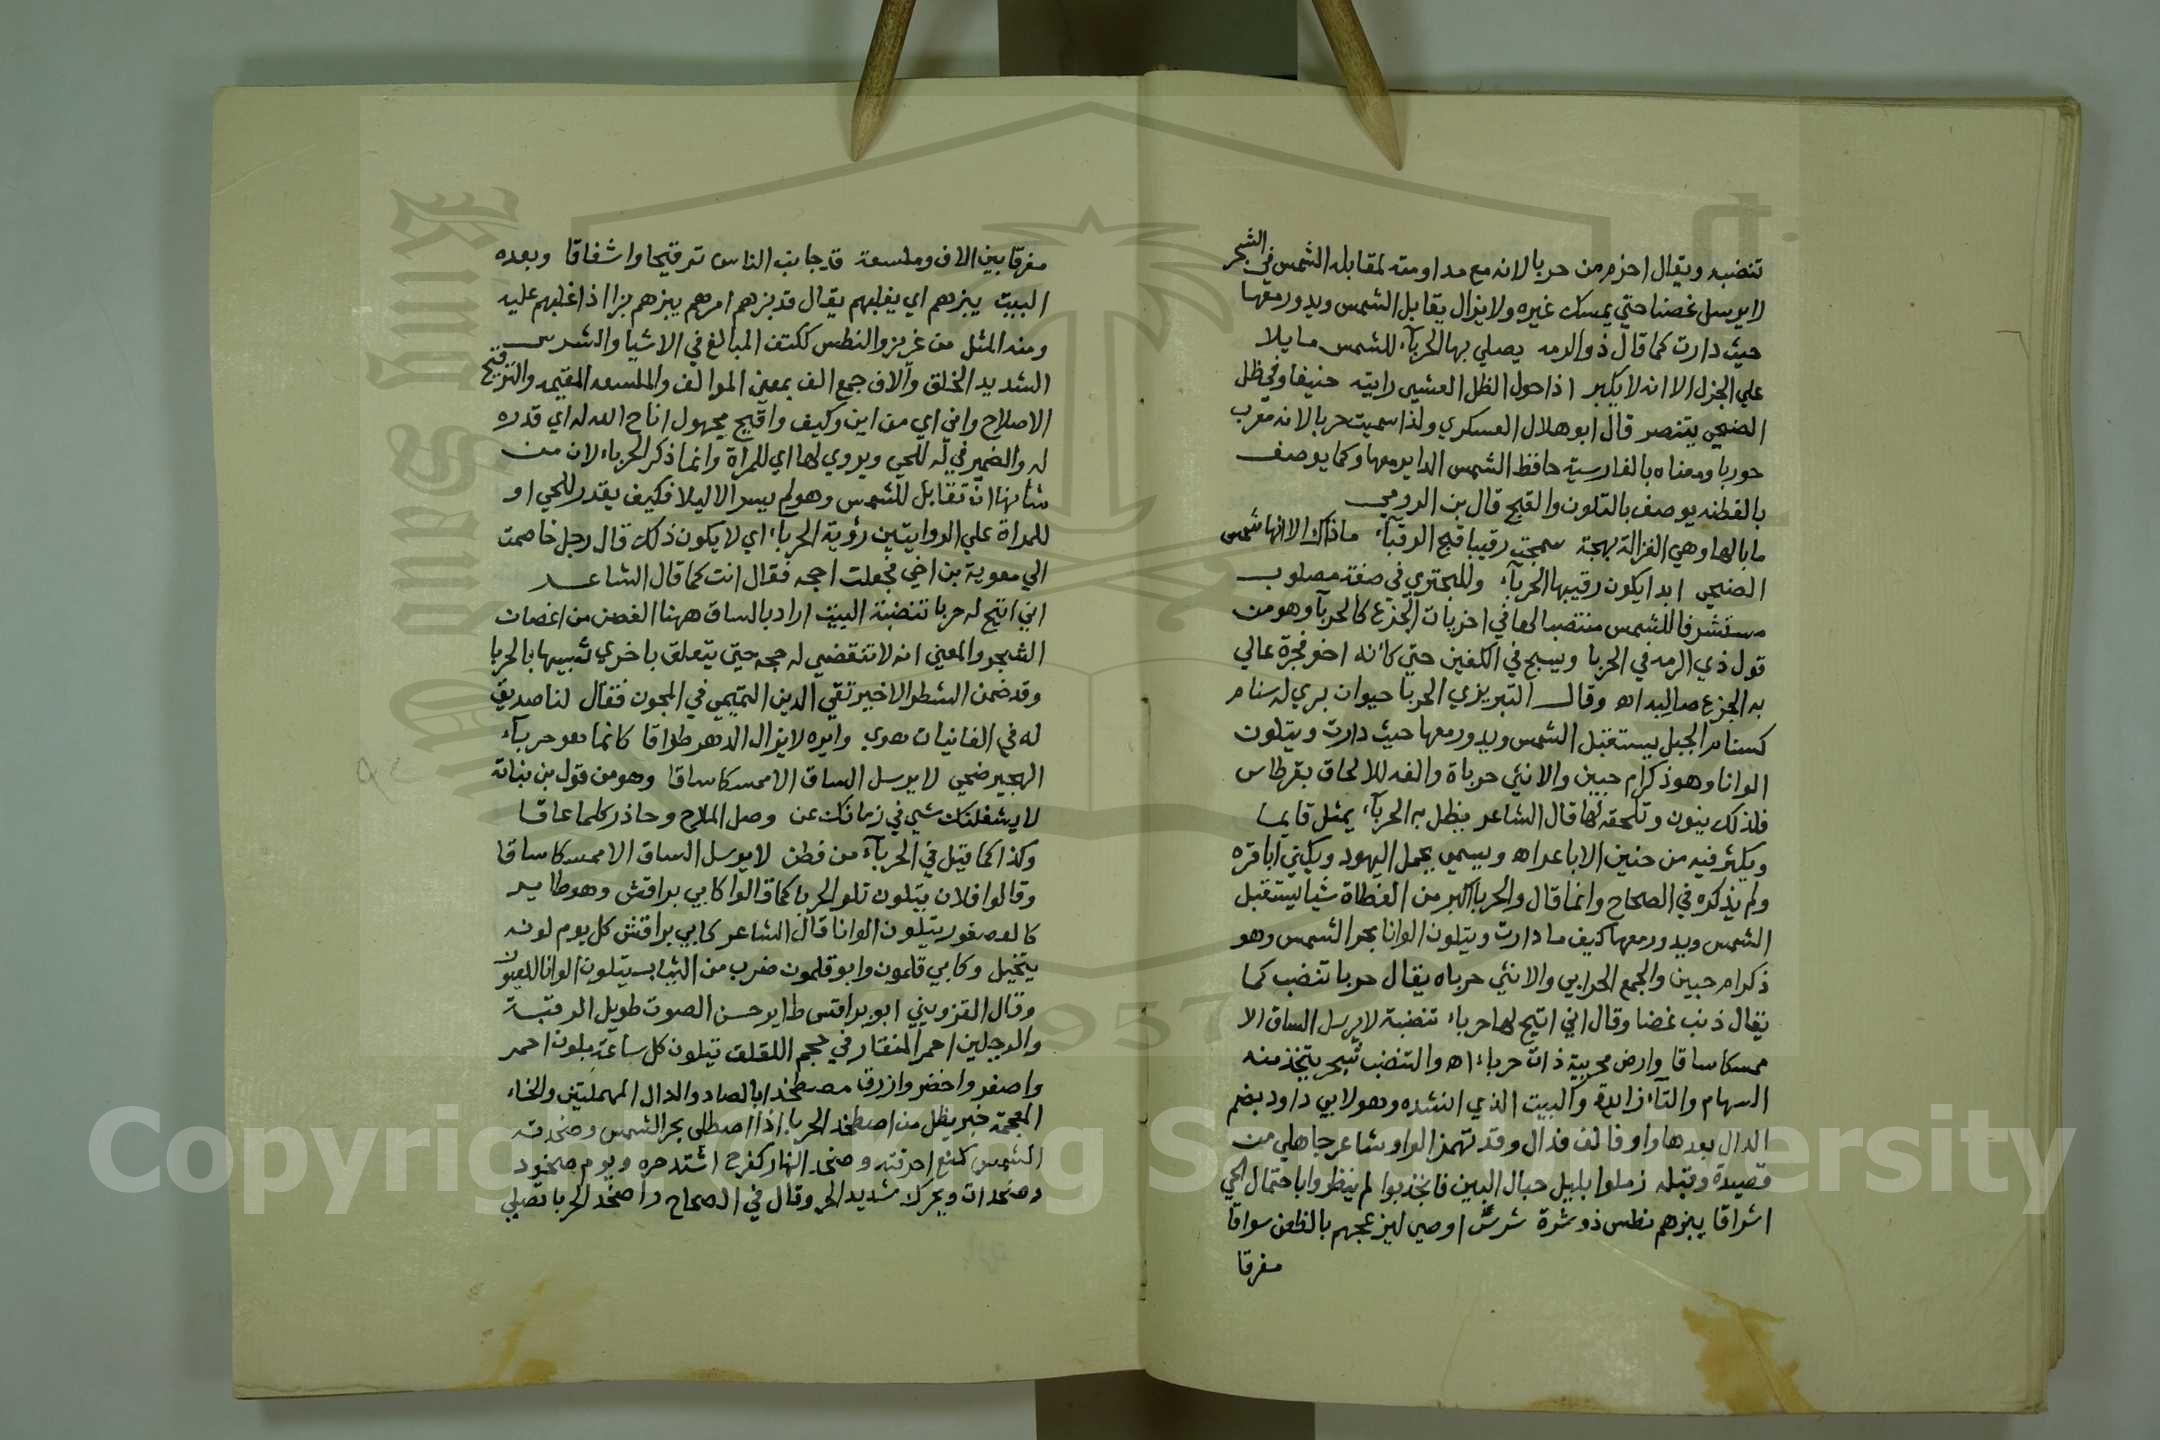 تنضبه ويقال احزم من حربا لانه مع مداومته لمقابلة الشمس في الشجر
لا يرسل غصنا حتي يمسك غيره ولا يزال يقابل الشمس ويدور معها
حيث دارت كما قال ذو الرمه يصلي بها الحربآء للشمس مايلا
علي الجزل الا انه لا يكبر اذا حول الظل العشي رايته حنيفا وفي ظل
الضحي يتنصر قال ابو هلال العسكري ولذا سميت حربا لانه معرب
حوربا ومعناه بالفارسية حافظ الشمس الداير معها وكما يوصف
بالفطنه يوصف بالتلون والقبح قال بن الرومي
ما بالها وهي الغزالة بهجة سمجت رقيبا قبح الرقبآء ماذاك الا انها شمس
الضحي ابدا يكون رقيبها الحربآء وللبحتري في صفة مصلوب
مستشرفا للشمس منتصبا لها في اخريات الجذع كالحربآ وهو من
قول ذي الرمه في الحربا ويسبح في الكفين حتي كانه اخو فجرة عالي
به الجزع صالبه اه وقال التبريزي الحربا حيوان بري له سنام
كسنام الجمل يستقبل الشمس ويدور معها حيث دارت ويتلون
الوانا وهو ذكر ام حبين والانثي حرباة والفه للالحاق بقرطاس
فلذلك ينون وتلحقه الها قال الشاعر يظل به الحربآء يمثل قايما
ويكثر فيه من حنين الاباعر اه ويسمي بجمل اليهود ويكني اباقره
ولم يذكره في الصحاح وانما قال والحربا اكبر من العظاة شيا يستقبل
الشمس ويدور معها كيف ما دارت ويتلون الوانا بحر الشمس وهو
ذكر ام حبين والجمع الحرابي والانثي حرباه يقال حربا تنضب كما
يقال ذئب غضا وقال اني اتيح لها حرباء تنضبة لا يرسل الساق الا
ممسكا ساقا وارض محربية ذات حرباء اه والتنضب شجر يتخذ منه
السهام والتآء زايدة والبيت الذي انشده وهو لابي داود بضم
الدال بعدها واو فالف فدال وقد تهمز الواو شاعر جاهلي من
قصيدة وقبله زملوا بليل حبال البين فانجذبوا لم ينظروا باحتمال الحي
اشراقا يبزهم نطس ذو شرة شرس اوصي ليزعجهم بالظعن سواقا
مفرقا
مفرقا بين الاف وملسعة قد جانب الناس ترقيحا واشفاقا وبعده
البيت يبزهم اي يغلبهم يقال قد بزهم امرهم يبزهم بزا اذا غلبهم عليه
ومنه المثل من عز بز والنطس ككتف المبالغ في الاشيا والشرس
الشديد الخلق وآلاف جمع الف بمعني الموالف والملسعه المقيمه والترقيح
الاصلاح واني اي من اين وكيف واتيح مجهول اتاح الله له اي قدره
له والضمير في له للحي ويروي لها اي للمرآة وانما ذكر الحرباء لان من
شانها ان تقابل للشمس وهو لم يسر الا ليلا فكيف يقدر للحي او
للمراة علي الروايتين رؤية الحرباء اي لا يكون ذلك قال رجل خاصمت
الي معوية بن اخي فجعلت احجه فقال انت كما قال الشاعر
اني اتيح له حربا تنضبة البيت اراد بالساق ههنا الغصن من اغصان
الشجر والمعني انه لا تنقضي له حجه حتي يتعلق باخري تشبيها بالحربا
وقد ضمن الشطر الاخير تقي الدين التميمي في المجون فقال لنا صديق
له في الغانيات هوي وايره لا يزال الدهر طواقا كانما هو حربآء
الهجير ضحي لا يرسل الساق الا ممسكا ساقا وهو من قول بن نباتة
لا يشغلنك شي في زمانك عن وصل الملاح وحاذر كلما عاقا
وكذا كما قيل في الحربآء من فطن لا يرسل الساق الا ممسكا ساقا
وقالوا فلان يتلون تلو الحربا كما قالوا كابي براقش وهو طاير
كالعصفور يتلون الوانا قال الشاعر كابي براقش كل يوم لونه
يتخيل وكابي قلمون وابو قلمون ضرب من الثياب يتلون الوانا للعيون
وقال القزويني ابو براقش طاير حسن الصوت طويل الرقبة
والرجلين احمر المنقار في حجم اللقلق يتلون كل ساعة بلون احمر
واصفر واخضر وازرق مصطخدا بالصاد والدال المهملتين والخاء
المعجمة خبر يظل من اصطخد الحربا اذا اصطلي بحر الشمس وصخدته
الشمس كمنع احرقته وصخد النهار كفرح اشتد حره ويوم صخود
وصخدان ويحرك شديد الحر وقال في الصحاح واصخد الحربا تصلي